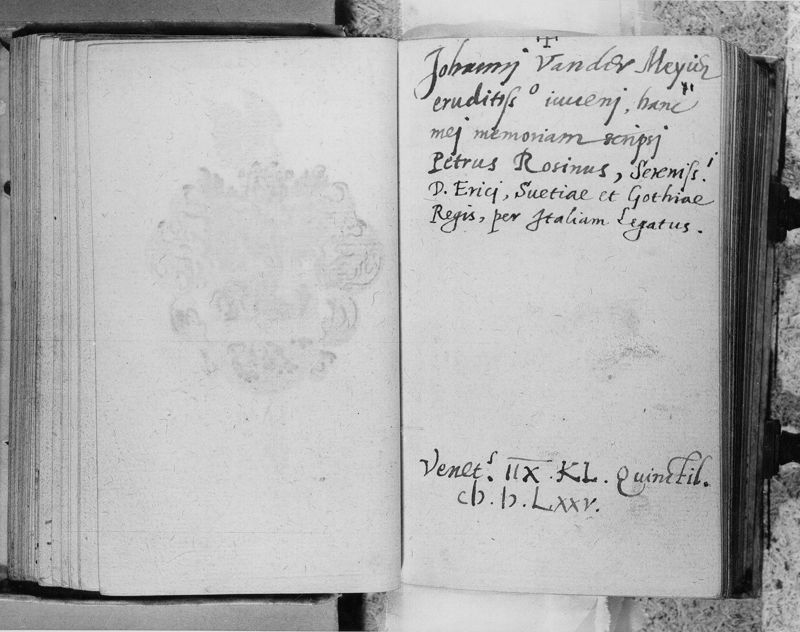 Johannj Vander Meyie
eruditiss.º iuuenj, hanc
mej memoriam scripsj
Petrus Rosinus, Sereniss.i
D. Ericj, Suetiae et Gothiae
Regis, per Italiam Legatus.
Venet.s IIX. KL. Quinctil.
cIɔ. Iɔ. Lxxv.